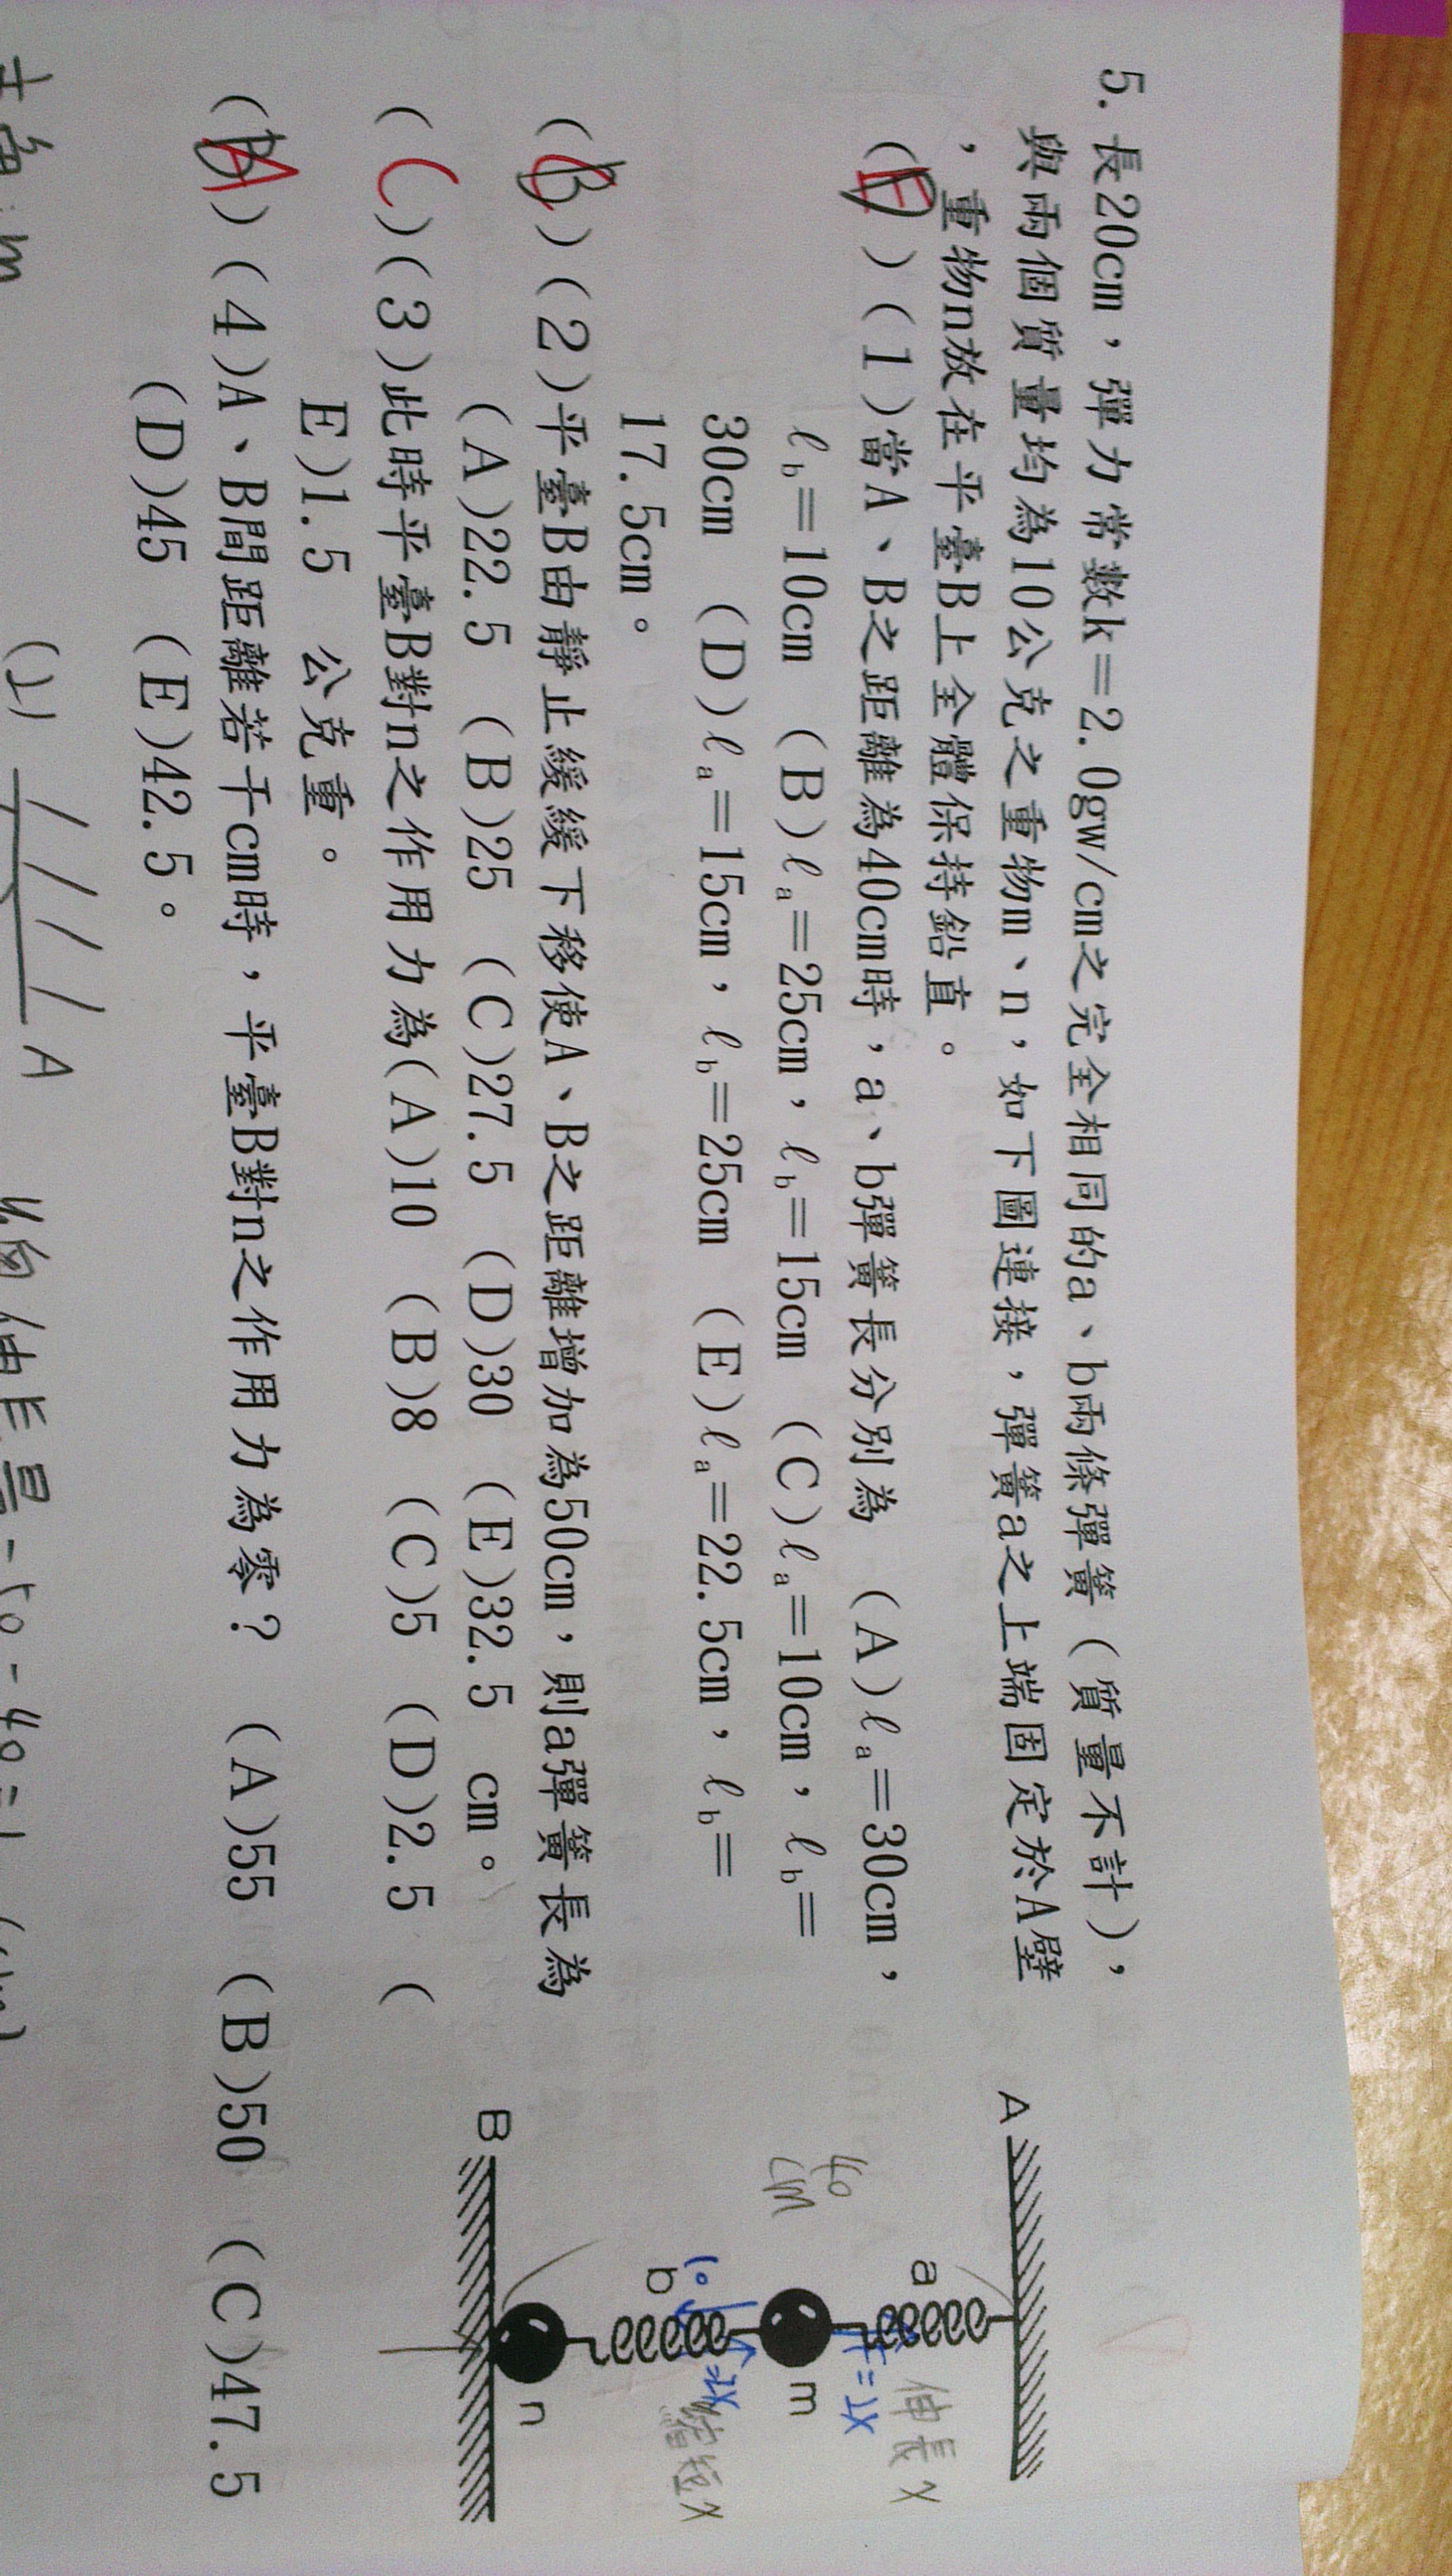 5. 長20cm，彈力常數k＝2.0gw/cm之完全相同的a、b兩條彈簧（質量不計），
與兩個質量均為10公克之重物m、n，如下圖連接，彈簧a之上端固定於A壁
，重物n放在平臺B上全體保持鉛直。
(E)(1)當A、B之距離為40cm時，a、b彈簧長分別為 (A)ℓa＝30cm，
ℓb＝10cm (B)ℓa＝25cm，ℓb＝15cm (C)ℓa＝10cm，ℓb＝
30cm (D)ℓa＝15cm，ℓb＝25cm (E)ℓa＝22.5cm，ℓb＝
17.5cm。
(C)(2)平臺B由靜止緩緩下移使A、B之距離增加為50cm，則a彈簧長為
(A)22.5 (B)25 (C)27.5 (D)30 (E)32.5 cm。
(C)(3)此時平臺B對n之作用力為(A)10 (B)8 (C)5 (D)2.5 (
E)1.5 公克重。
(A)(4)A、B間距離若干cm時，平臺B對n之作用力為零？ (A)55 (B)50 (C)47.5
(D)45 (E)42.5。
A
a
伸長x
m
40
cm
b
10
縮短x
n
B
(1)
A